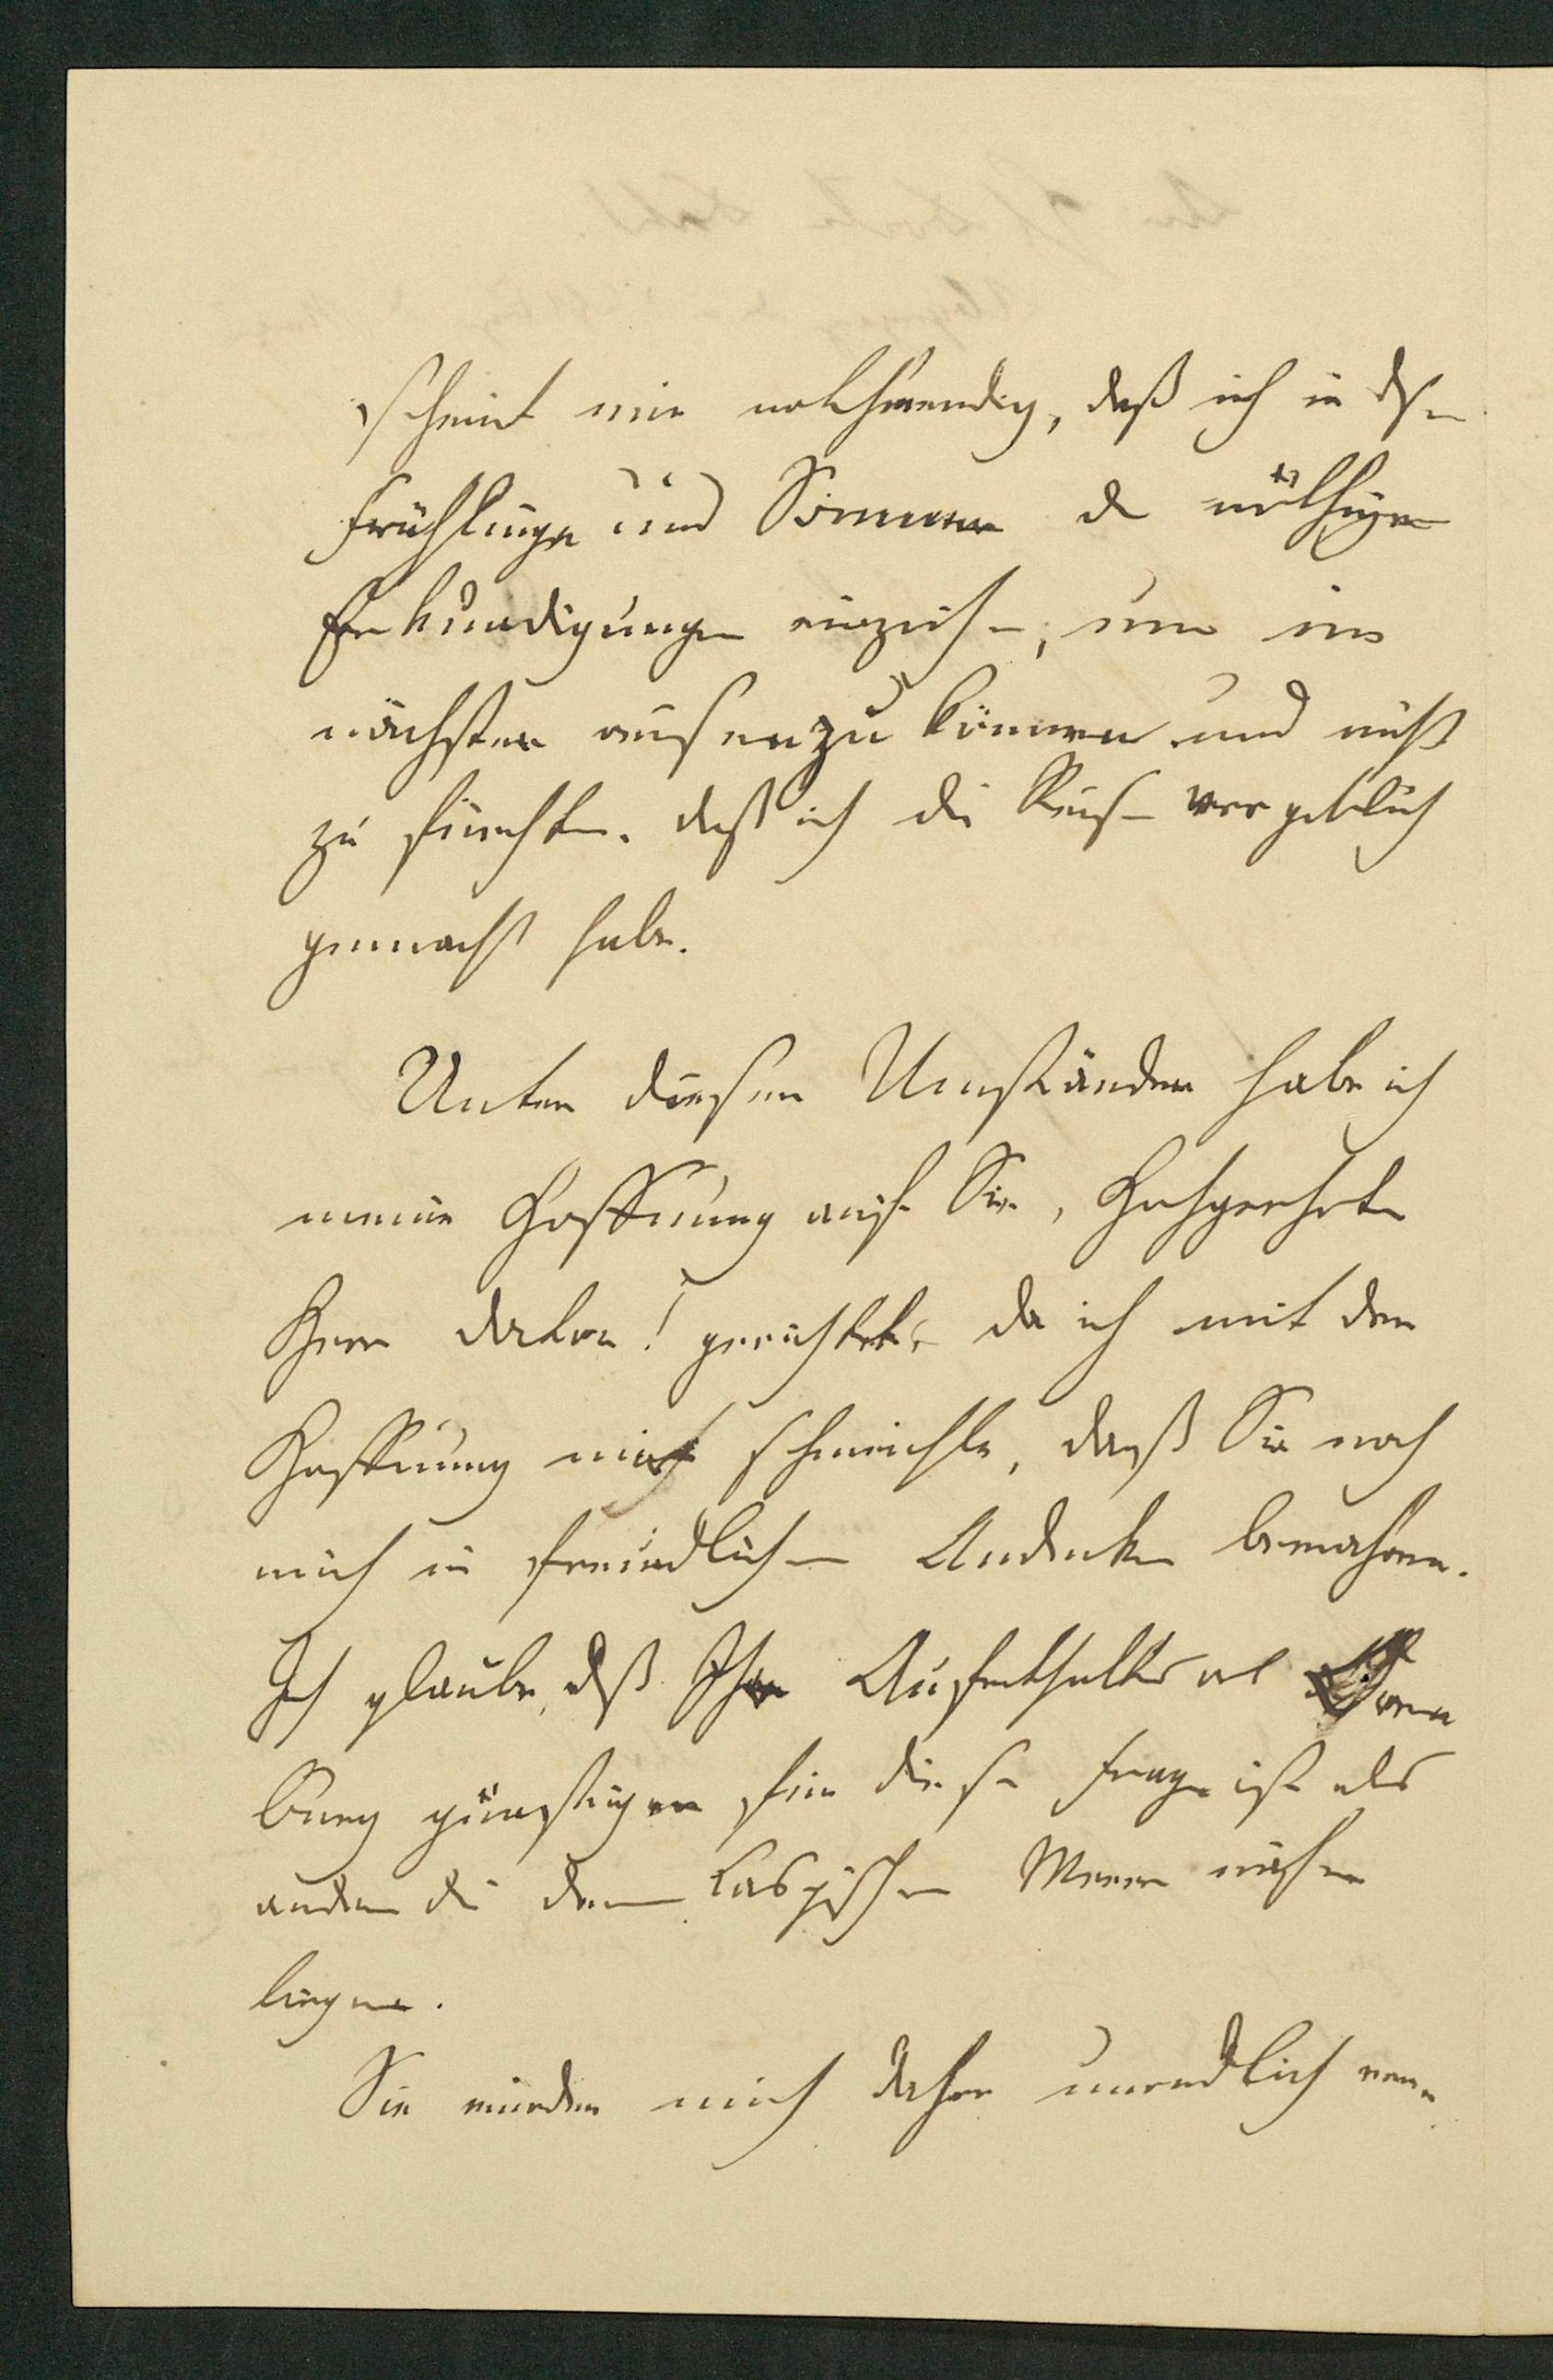 scheint mir nothwendig, daß ich in dsn
Frühlinge und Sommer d nöthigen
Erkundigungen einziehe, um im
nächsten reisen zu können und nicht
zu fürchten, daß ich die Reise vergeblich
gemacht habe.
Unter diesen Umständen habe ich
meine Hoffnung auf Sie, Hochgeehrter
Herr Doktor! gerichtet, da ich mit der
Hoffnung mich schmeichle, daß Sie noch
mich in freundlichem Andenken bewahren.
Ich glaube, dß Ihr Aufenthaltsort Oren
burg günstiger für diese Frage ist als
andere die dem Caspischen Meere näher
liegen.
Sie würden mich daher unendlich ver-